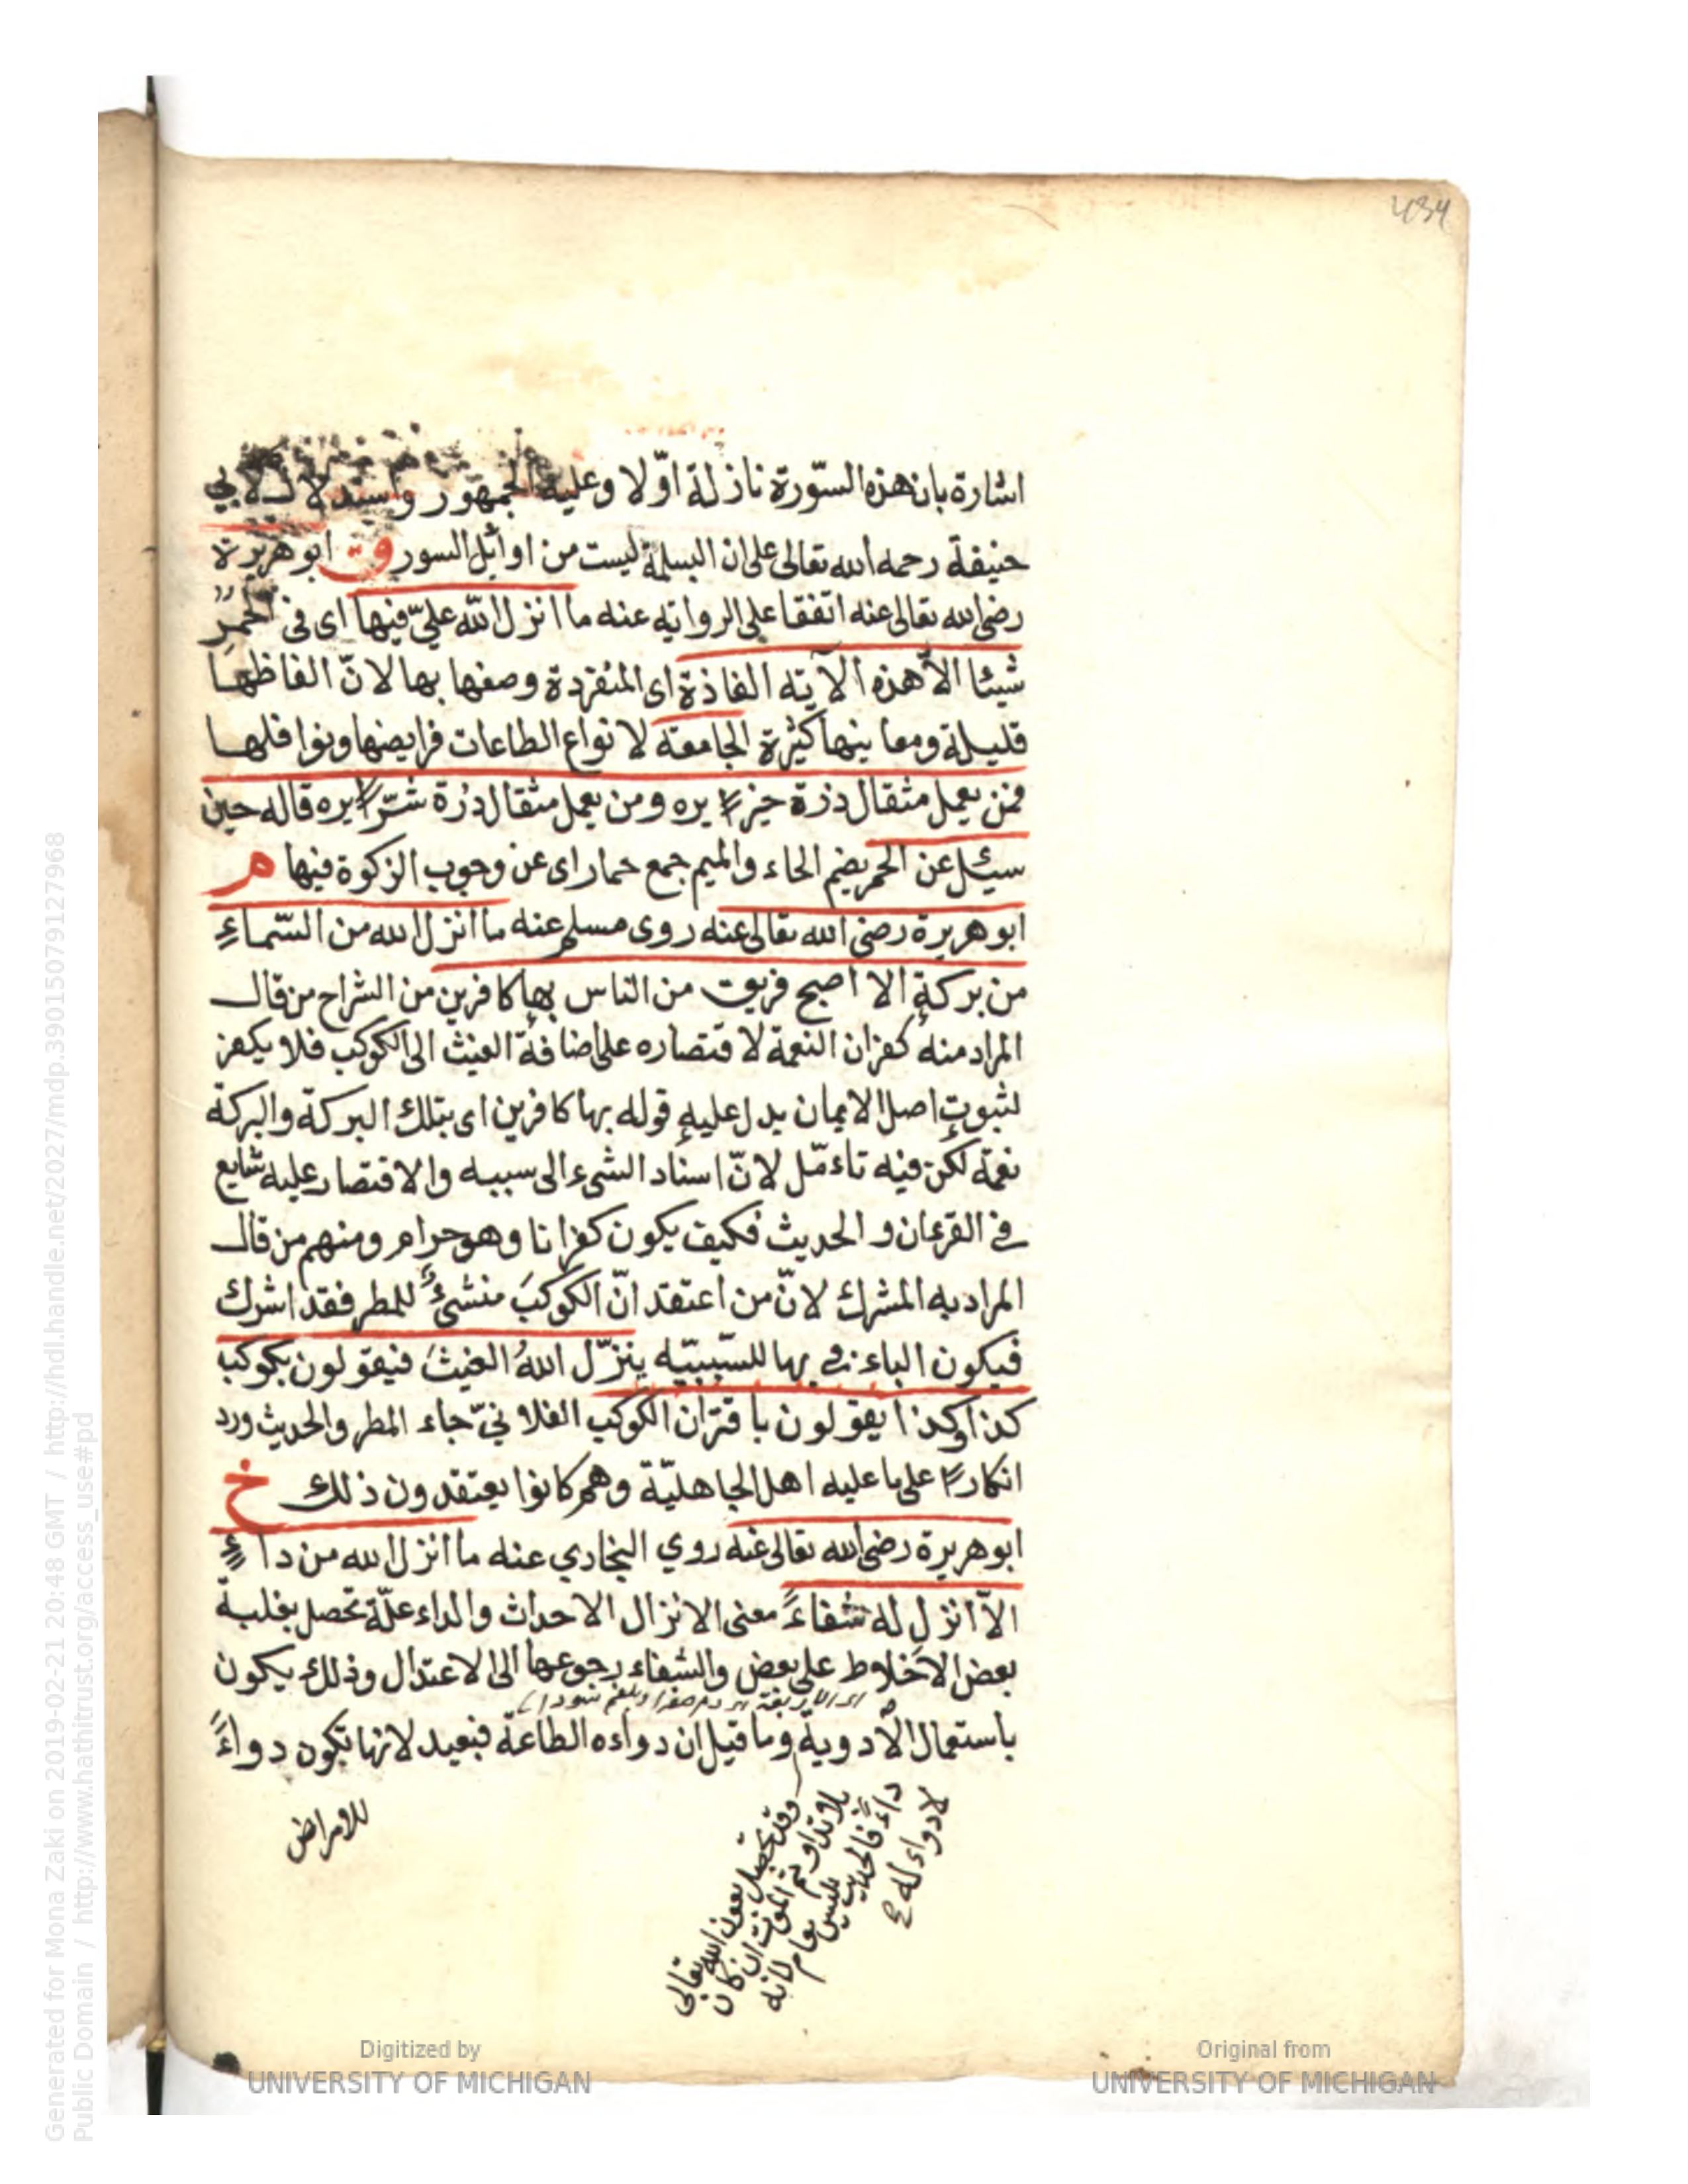 434
اشارة بان هذه السّورة نازلة اوّلا وعليه الجمهور واستدلال لابي
حنيفة رحمه الله تعالى على ان البسملة ليست من اوائل السور ق ابو هريرة
رضي الله تعالى عنه اتفقا على الرواية عنه ما انزل الله عليّ فيها اى فى الحمر
شيئا الّا هذه الآية الفاذة اى المنفردة وصفها بها لانّ الفاظها
قليلة ومعانيها كثيرة الجامعة لانواع الطاعات فرايضها ونوافلها
فمن يعمل مثقال ذرة خيرا يره ومن يعمل مثقال ذرة شرّا يره قاله حين
سيئل عن الحمر بضم الحاء والميم جمع حمار اى عن وجوب الزكوة فيها م
ابو هريرة رضى الله تعالى عنه روى مسلم عنه ما انزل الله من السّماءِ
من بركةٍ الا اصبح فريق من الناس بها كافرين من الشراح من قال
المراد منه كفران النعمة لاقتصاره على اضافة الغيث الى الكوكب فلا يكفر
لثبوت اصل الايمان يدل عليه قوله بها كافرين اى بتلك البركة والبركة
نعمة لكن فيه تاءمّل لانّ اسناد الشىء الى سببه والاقتصار عليه شايع
فى القرءان و الحديث فكيف يكون كفرانا وهو حرام ومنهم من قال
المراد به المشرك لانّ من اعتقد انّ الكوكبَ منشئٌ للمطر فقد اشرك
فيكون الباء فى بها للسّببيّه ينزّل اللهُ الغيثَ فيقولون بكوكب
كذا وكذا يقولون باقتران الكوكب الفلانيّ جاء المطر والحديث ورد
انكارًا على ما عليه اهل الجاهليّة وهم كانوا يعتقدون ذلك خ
ابو هريرة رضى الله تعالى عنه روي البخاري عنه ما انزل الله من داءٍ
الاّ انزل له شفاءً معنى الانزال الاحداث والداء علّة تحصل بغلبة
بعض الاخلاط على بعض والشفاء رجوعها الى الاعتدال وذلك يكون
باستعمال الادوية وما قيل ان دواءه الطاعة فبعيد لانها تكون دواءً
للامراض
وقد تحصل بعون الله تعالى
بلا تداو ثم الموت ان كان
داءً فالحديث ليس بعام لانه
لا دواء له